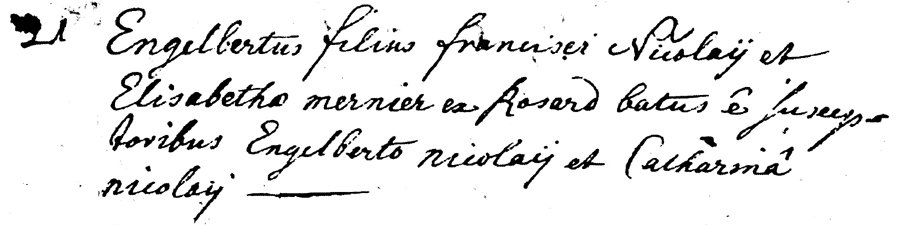 21 Engelbertus filius francisci Nicolaÿ et
Elisabethæ mernier ex Rosard batus ê suscep-
toribus Engelberto nicolaÿ et Catharinâ
nicolaÿ